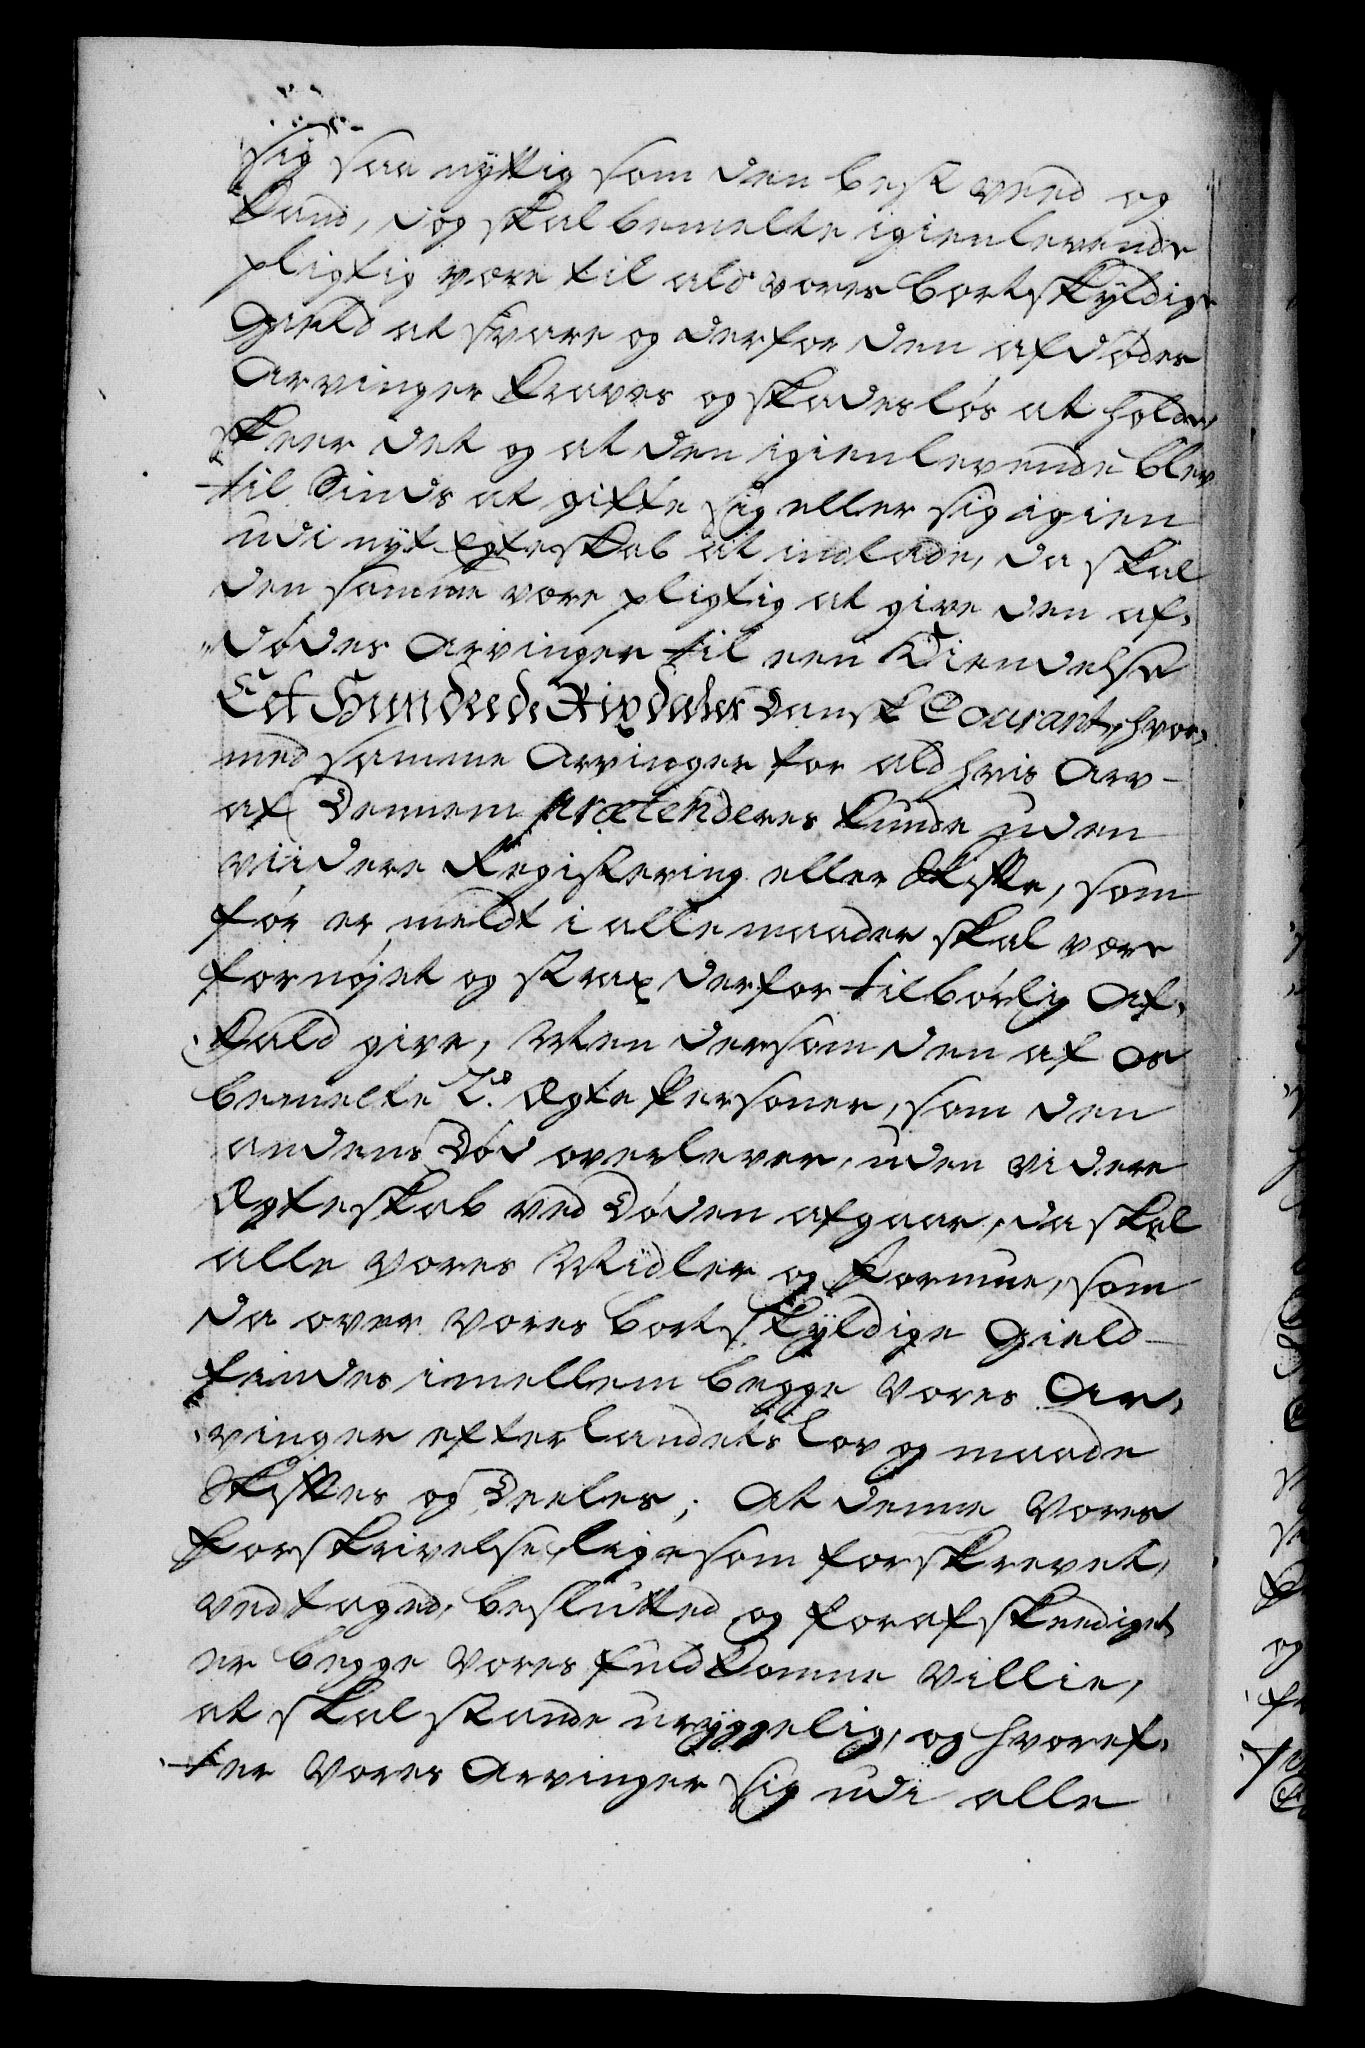 sig saa nyttig som den best veed og
kand, dog skal bemelte igienlevende
pligtig være til ald vores bortskyldige
Gield at svare og derfor den afdødes
Arvinger kravés og skadesløs at holde,
skeer det og at den igienlevende blev
til Sinds at gifte sig eller sig igien
udi nyt Egteskab at indlade, da skal
den samme være pligtig at give den af-
dødes Arvinger til een Kiendelse
Eet Hundrede Rixdaler Dansk Courant, hvor-
med samme Arvinger for ald hvis Arv
af Dennem prætenderes kunde uden
viidere Registering eller Skifte, som
før er meldt i alle maader skal være
fornøjet og strax derfor tilbørlig Af-
kald give, Men dersom den af os
bemelte 2de Ægte Personer, som den
andens Død overlever, uden videre
Ægteskab ved Døden afgaar, da skal
alle vores Midler og Formue, som
da over vores bortskyldige Gield
findes imellem begge vores Ar-
vinger efter Landets Lov og maade
Skiftes og Deeles; At denne vores
Forskrivelse, ligesom forskrevet,
vedtaged, besluttet og forafskeediget
er begge vores fuldkomne Villie,
at skal stande uryggelig, og hvoref-
ter vores Arvinger sig udi alle